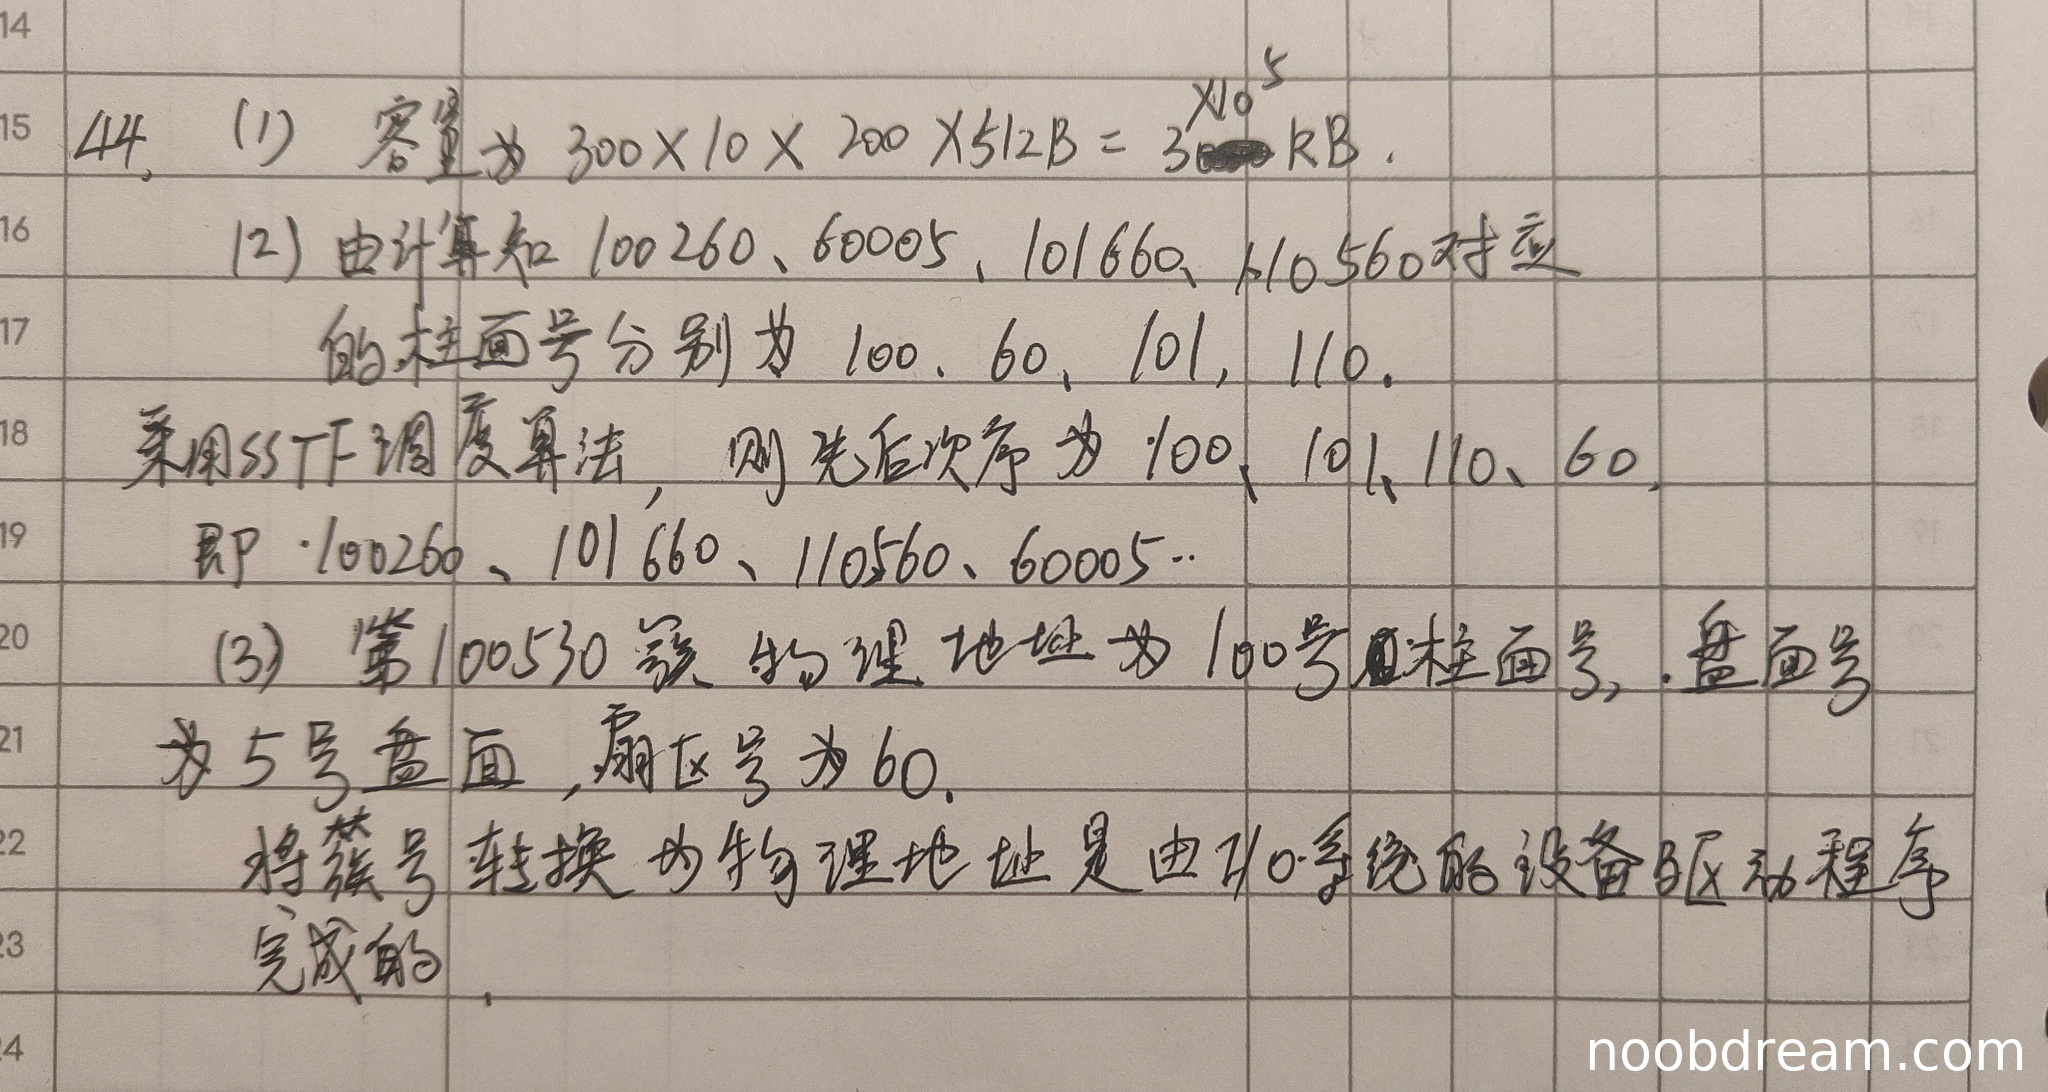 14
15 44. (1) 容量为 300×10×200×512B = 3×10⁵ KB.
16 (2) 由计算知 100260、60005、101660、110560对应
17 的柱面号分别为 100、60、101, 110.
18 采用SSTF调度算法, 则先后次序为100、101、110、60.
19 即·100260、101660、110560、60005..
20 (3) 第100530簇物理地址为100号柱面号, 盘面号
21 为5号盘面, 扇区号为60.
22 将簇号转换为物理地址是由I/O系统的设备驱动程序
23 完成的.
24
noobdream.com